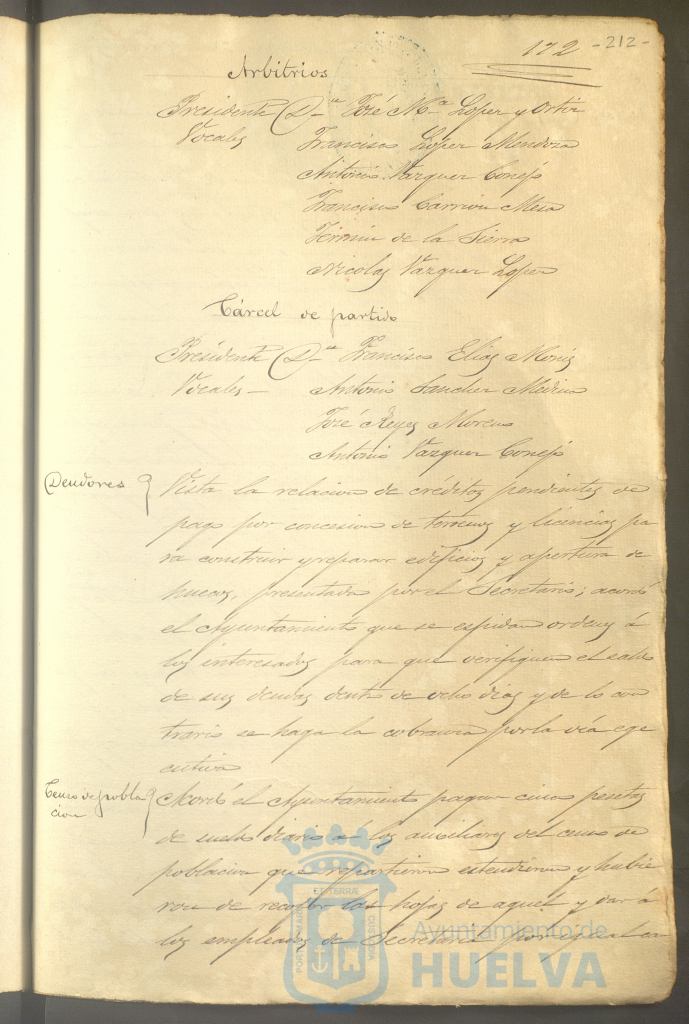 172 -212-
Arbitrios
Presidente D.n José M.a López y Ortiz
Vocales Francisco López Mendoza
Antonio Vazquez Conejo
Francisco Carrion Mesa
Fermin de la Sierra
Nicolas Vazquez Lopez
Cárcel de partido
Presidente D.n Francisco Elias Moris
Vocales - Antonio Sanchez Medina
José Reyes Moreno
Antonio Vazquez Conejo
Deudores Vista la relacion de créditos pendientes de
pago por concesion de terrenos y licencias pa
ra construir y reparar edificios y apertura de
huecos, presentada por el Secretario; acordó
el Ayuntamiento que se espidan ordenes á
los interesados para que verifiquen el saldo
de sus deudas dentro de ocho dias y de lo con
trario se haga la cobranza por la via ege
cutiva
Censo de pobla
cion
Acordó el Ayuntamiento pagar cinco pesetas
de sueldo diario á los auxiliares del censo de
poblacion que repartieron estendieron y hubie
ron de recoger las hojas de aquel y dar á
los empleados de Secretaria por igual con
PORTUS MARIS ET TERRÆ CUSTODIA
Ayuntamiento de
HUELVA